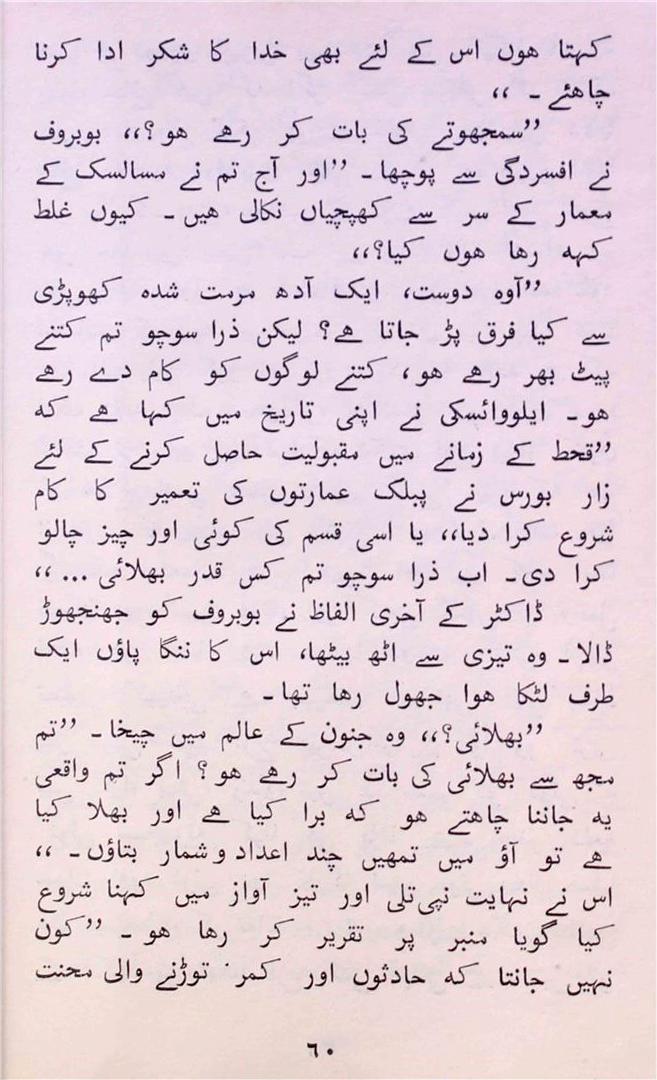 کہتا ھوں اس کے لئے بھی خدا کا شکر ادا کرنا
چاھئے ـ ،،
’’سمجھوتے کی بات کر رھے ھو؟،، بوبروف
نے افسردگی سے پوچھا ـ ’’اور آج تم نے مسالسک کے
معمار کے سر سے کھپچیاں نکالی ھیں ـ کیوں غلط
کہہ رھا ھوں کیا؟،،
’’آوہ دوست، ایک آدھ مرمت شدہ کھوپڑی
سے کیا فرق پڑ جاتا ھے؟ لیکن ذرا سوچو تم کتنے
پیٹ بھر رھے ھو، کتنے لوگوں کو کام دے رھے
ھو ـ ایلووائسکی نے اپنی تاریخ میں کہا ھے کہ
’’قحط کے زمانے میں مقبولیت حاصل کرنے کے لئے
زار بورس نے پبلک عمارتوں کی تعمیر کا کام
شروع کرا دیا،، یا اسی قسم کی کوئی اور چیز چالو
کرا دی ـ اب ذرا سوچو تم کس قدر بھلائی ... ،،
ڈاکٹر کے آخری الفاظ نے بوبروف کو جھنجھوڑ
ڈالا ـ وہ تیزی سے اٹھ بیٹھا، اس کا ننگا پاؤں ایک
طرف لٹکا ھوا جھول رھا تھا ـ
’’بھلائی؟،، وہ جنون کے عالم میں چیخا ـ ’’تم
مجھ سے بھلائی کی بات کر رھے ھو؟ اگر تم واقعی
یہ جاننا چاھتے ھو کہ برا کیا ھے اور بھلا کیا
ھے تو آؤ میں تمھیں چند اعداد و شمار بتاؤں ـ ،،
اس نے نہایت نپی تلی اور تیز آواز میں کہنا شروع
کیا گویا منبر پر تقریر کر رھا ھو ـ ’’کون
نہیں جانتا کہ حادثوں اور کمر توڑنے والی محنت
٦٠